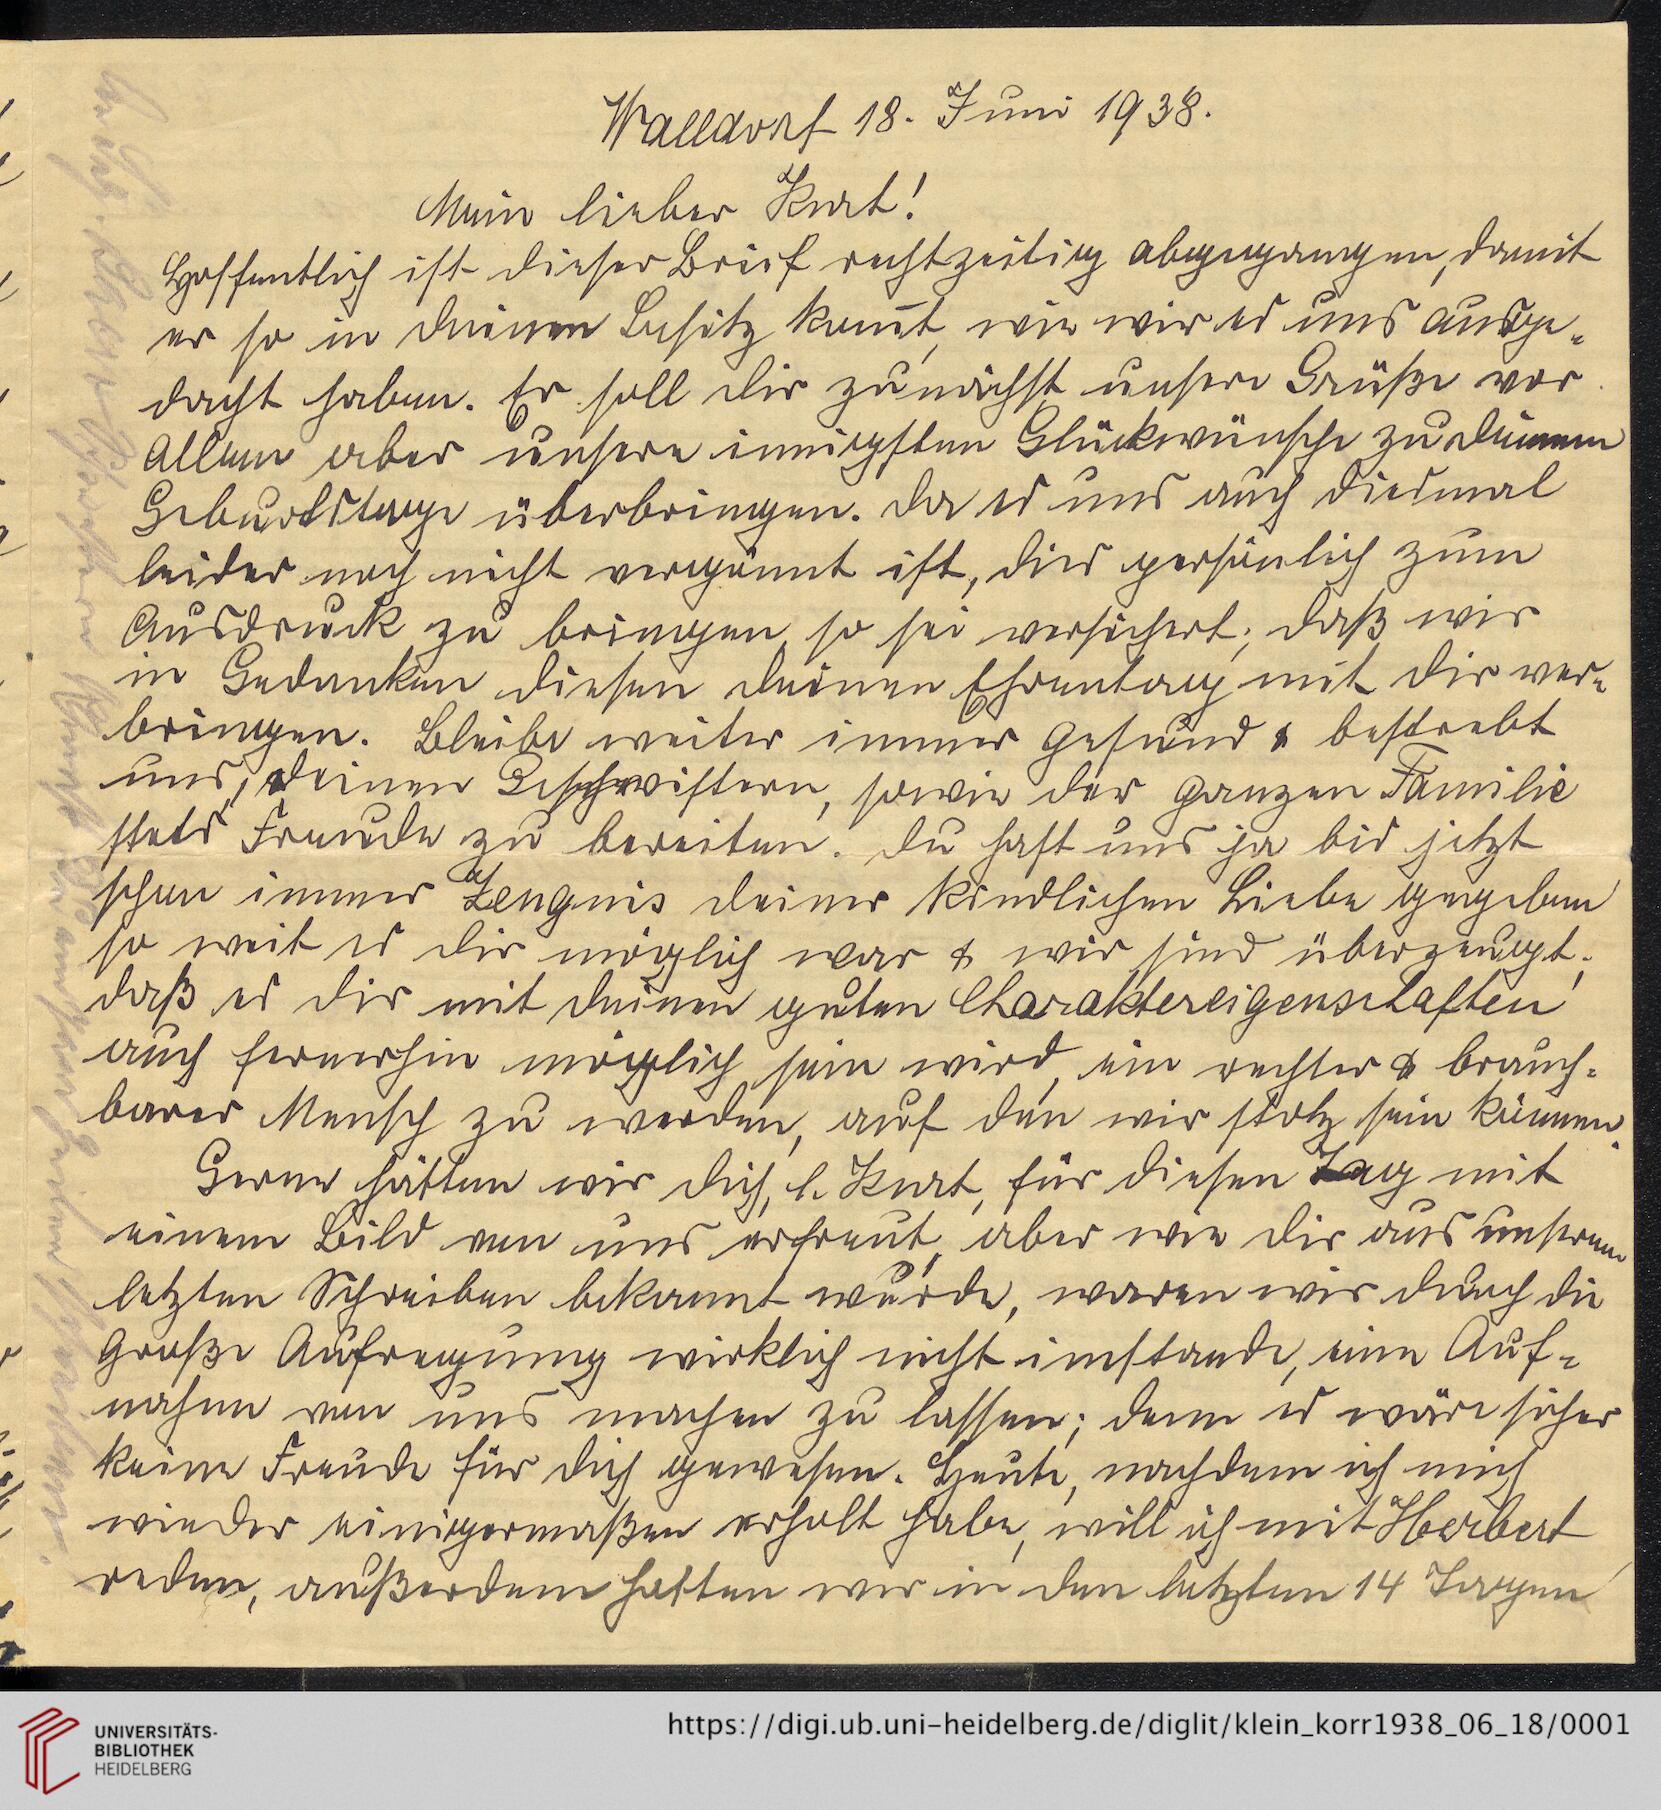 Walldorf 18. Juni 1938.
Mein lieber Kurt!
Hoffentlich ist dieser Brief rechtzeitig abgegangen, damit
er so in deinen Besitz kom̄t, wie wir es uns ausge-
dacht haben. Er soll dir zunächst unsere Grüße vor
allem aber unsere innigsten Glückwünsche zu deinem
Geburtstage überbringen. Da es uns auch diesmal
leider noch nicht vergönnt ist, dies persönlich zum
Ausdruck zu bringen, so sei versichert, daß wir
in Gedanken diesen deinen Ehrentag mit dir ver-
bringen. Bleibe weiter immer gesund & bestrebt
uns, deinen Geschwistern, sowie der ganzen Familie
stets Freude zu bereiten. Du hast uns ja bis jetzt
schon immer Zeugnis deiner kindlichen Liebe gegeben
so weit es dir möglich war & wir sind überzeugt,
daß es dir mit deinen guten Charaktereigenschaften
auch fernerhin möglich sein wird, ein rechter & brauch-
barer Mensch zu werden, auf den wir stolz sein können.
Gerne hätten wir dich, l. Kurt, für diesen Tag mit
einem Bild von uns erfreut, aber wie dir aus unserem
letzten Schreiben bekannt wurde, waren wir durch die
große Aufregung wirklich nicht imstande, eine Auf-
nahme von uns machen zu lassen; denn es wäre sicher
keine Freude für dich gewesen. Heute, nachdem ich mich
wieder einigermaßen erholt habe, will ich mit Herbert
reden, außerdem hatten wir in den letzten 14 Tagen
UNIVERSITÄTS-
BIBLIOTHEK
HEIDELBERG
https://digi.ub.uni-heidelberg.de/diglit/klein_korr1938_06_18/0001